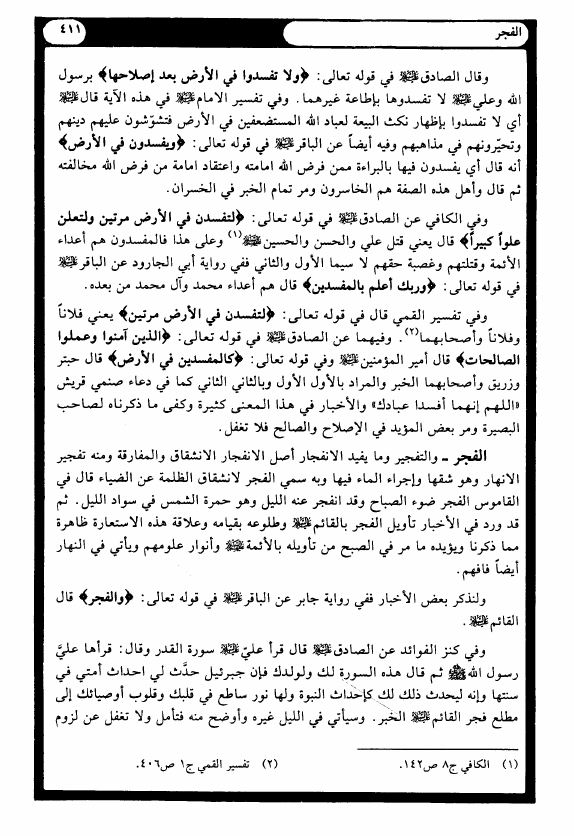 الفجر
٤١١
وقال الصادق ﷺ في قوله تعالى: ﴿ولا تفسدوا في الأرض بعد إصلاحها﴾ برسول
الله وعلي ﷺ لا تفسدوها بإطاعة غيرهما. وفي تفسير الامام ﷺ في هذه الآية قال ﷺ
أي لا تفسدوا بإظهار نكث البيعة لعباد الله المستضعفين في الأرض فتشوّشون عليهم دينهم
وتحيّرونهم في مذاهبهم وفيه أيضاً عن الباقر ﷺ في قوله تعالى: ﴿ويفسدون في الأرض﴾
أنه قال أي يفسدون فيها بالبراءة ممن فرض الله امامته واعتقاد امامة من فرض الله مخالفته
ثم قال وأهل هذه الصفة هم الخاسرون ومر تمام الخبر في الخسران.
وفي الكافي عن الصادق ﷺ في قوله تعالى: ﴿لتفسدن في الأرض مرتين ولتعلن
علواً كبيراً﴾ قال يعني قتل علي والحسن والحسين ﷺ(١) وعلى هذا فالمفسدون هم أعداء
الأئمة وقتلتهم وغصبة حقهم لا سيما الأول والثاني ففي رواية أبي الجارود عن الباقر ﷺ
في قوله تعالى: ﴿وربك أعلم بالمفسدين﴾ قال هم أعداء محمد وآل محمد من بعده.
وفي تفسير القمي قال في قوله تعالى: ﴿لتفسدن في الأرض مرتين﴾ يعني فلاناً
وفلاناً وأصحابهما(٢). وفيهما عن الصادق ﷺ في قوله تعالى: ﴿الذين آمنوا وعملوا
الصالحات﴾ قال أمير المؤمنين ﷺ وفي قوله تعالى: ﴿كالمفسدين في الأرض﴾ قال حبتر
وزريق وأصحابهما الخبر والمراد بالأول الأول وبالثاني الثاني كما في دعاء صنمي قريش
«اللهم إنهما أفسدا عبادك» والأخبار في هذا المعنى كثيرة وكفى ما ذكرناه لصاحب
البصيرة ومر بعض المؤيد في الإصلاح والصالح فلا تغفل.
الفجر ـ والتفجير وما يفيد الانفجار أصل الانفجار الانشقاق والمفارقة ومنه تفجير
الانهار وهو شقها وإجراء الماء فيها وبه سمي الفجر لانشقاق الظلمة عن الضياء قال في
القاموس الفجر ضوء الصباح وقد انفجر عنه الليل وهو حمرة الشمس في سواد الليل. ثم
قد ورد في الأخبار تأويل الفجر بالقائم ﷺ وطلوعه بقيامه وعلاقة هذه الاستعارة ظاهرة
مما ذكرنا ويؤيده ما مر في الصبح من تأويله بالأئمة ﷺ وأنوار علومهم ويأتي في النهار
أيضاً فافهم.
ولنذكر بعض الأخبار ففي رواية جابر عن الباقر ﷺ في قوله تعالى: ﴿والفجر﴾ قال
القائم ﷺ.
وفي كنز الفوائد عن الصادق ﷺ قال قرأ عليّ ﷺ سورة القدر وقال: قرأها عليَّ
رسول الله ﷺ ثم قال هذه السورة لك ولولدك فإن جبرئيل حدَّث لي احداث أمتي في
سنتها وإنه ليحدث ذلك لك كإحداث النبوة ولها نور ساطع في قلبك وقلوب أوصيائك إلى
مطلع فجر القائم ﷺ الخبر. وسيأتي في الليل غيره وأوضح منه فتأمل ولا تغفل عن لزوم
(١) الكافي ج٨ ص١٤٢.
(٢) تفسير القمي ج١ ص٤٠٦.